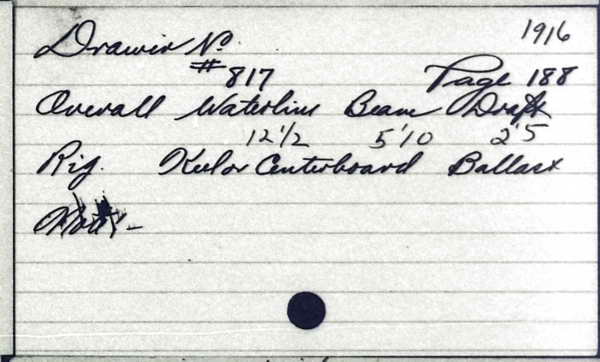 1916
Drawin No.
#817 Page 188
Overall Waterline Beam Draft
12 1/2 5'10 2'5
Rig. Keel or Centerboard Ballast